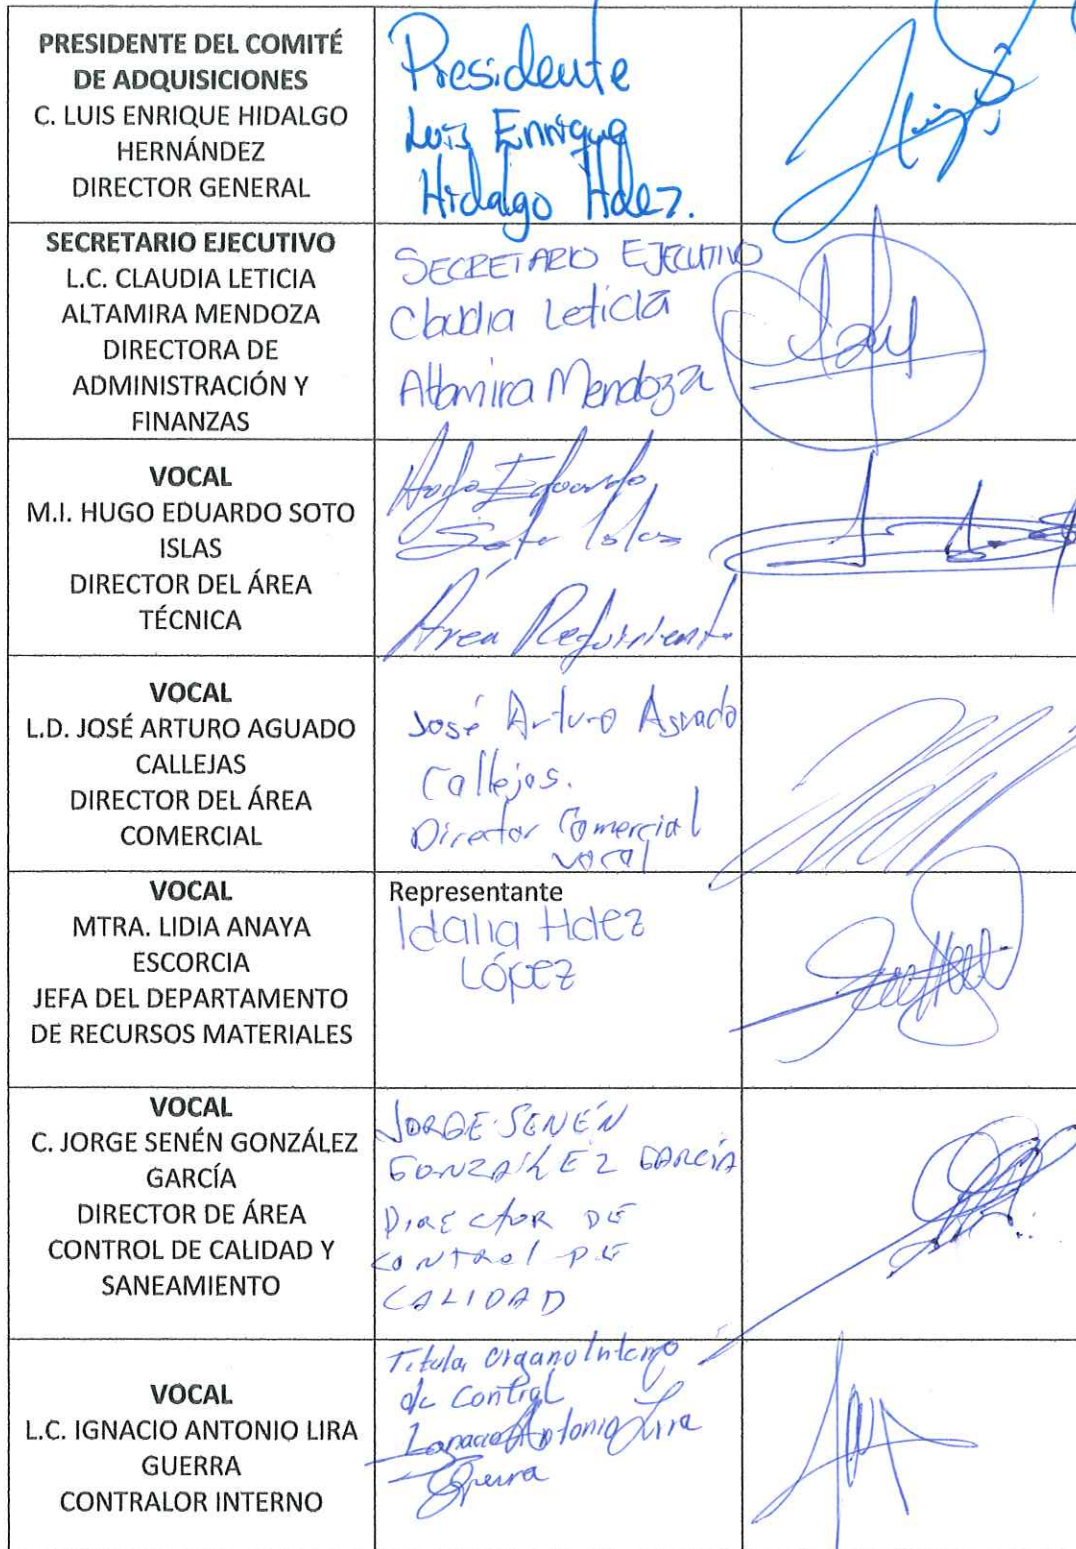 PRESIDENTE DEL COMITÉ
DE ADQUISICIONES
C. LUIS ENRIQUE HIDALGO
HERNÁNDEZ
DIRECTOR GENERAL
Presidente
Luis Enrique
Hidalgo Hdez.
SECRETARIO EJECUTIVO
L.C. CLAUDIA LETICIA
ALTAMIRA MENDOZA
DIRECTORA DE
ADMINISTRACIÓN Y
FINANZAS
SECRETARIO EJECUTIVO
Claudia Leticia
Altamira Mendoza
VOCAL
M.I. HUGO EDUARDO SOTO
ISLAS
DIRECTOR DEL ÁREA
TÉCNICA
Hugo Eduardo
Soto Islas
Área Requiriente
VOCAL
L.D. JOSÉ ARTURO AGUADO
CALLEJAS
DIRECTOR DEL ÁREA
COMERCIAL
José Arturo Aguado
Callejas.
Director Comercial
vocal
VOCAL
MTRA. LIDIA ANAYA
ESCORCIA
JEFA DEL DEPARTAMENTO
DE RECURSOS MATERIALES
Representante
Idalia Hdez
López
VOCAL
C. JORGE SENÉN GONZÁLEZ
GARCÍA
DIRECTOR DE ÁREA
CONTROL DE CALIDAD Y
SANEAMIENTO
JORGE SENÉN
GONZÁLEZ GARCÍA
DIRECTOR DE
CONTROL DE
CALIDAD
VOCAL
L.C. IGNACIO ANTONIO LIRA
GUERRA
CONTRALOR INTERNO
Titular Organo Interno
de Control
Ignacio Antonio Lira
Guerra